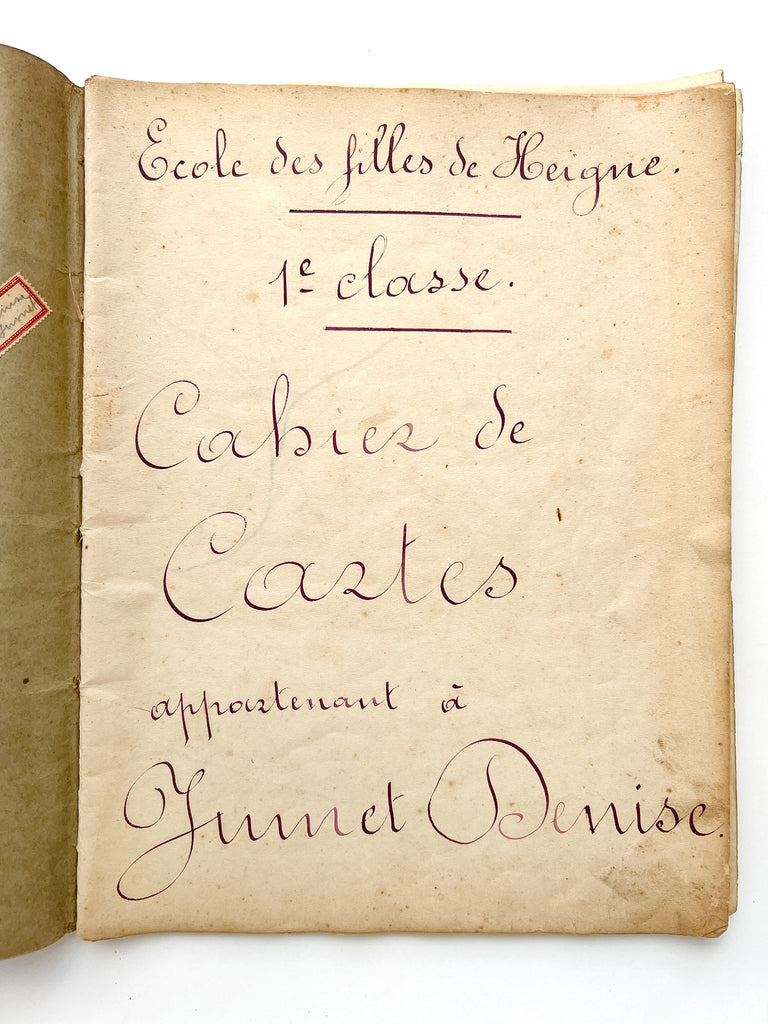 Ecole des filles de Heigne.
1e classe.
Cahier de
Cartes
appartenant à
Jumet Denise.
Jumet